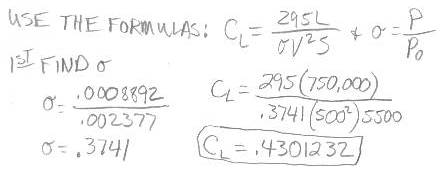 USE THE FORMULAS: C_L = 295L / σV²S & σ = P / P₀
1ST FIND σ
σ = .0008892 / .002377
σ = .3741
C_L = 295(750,000) / .3741(500²)5500
C_L = .4301232